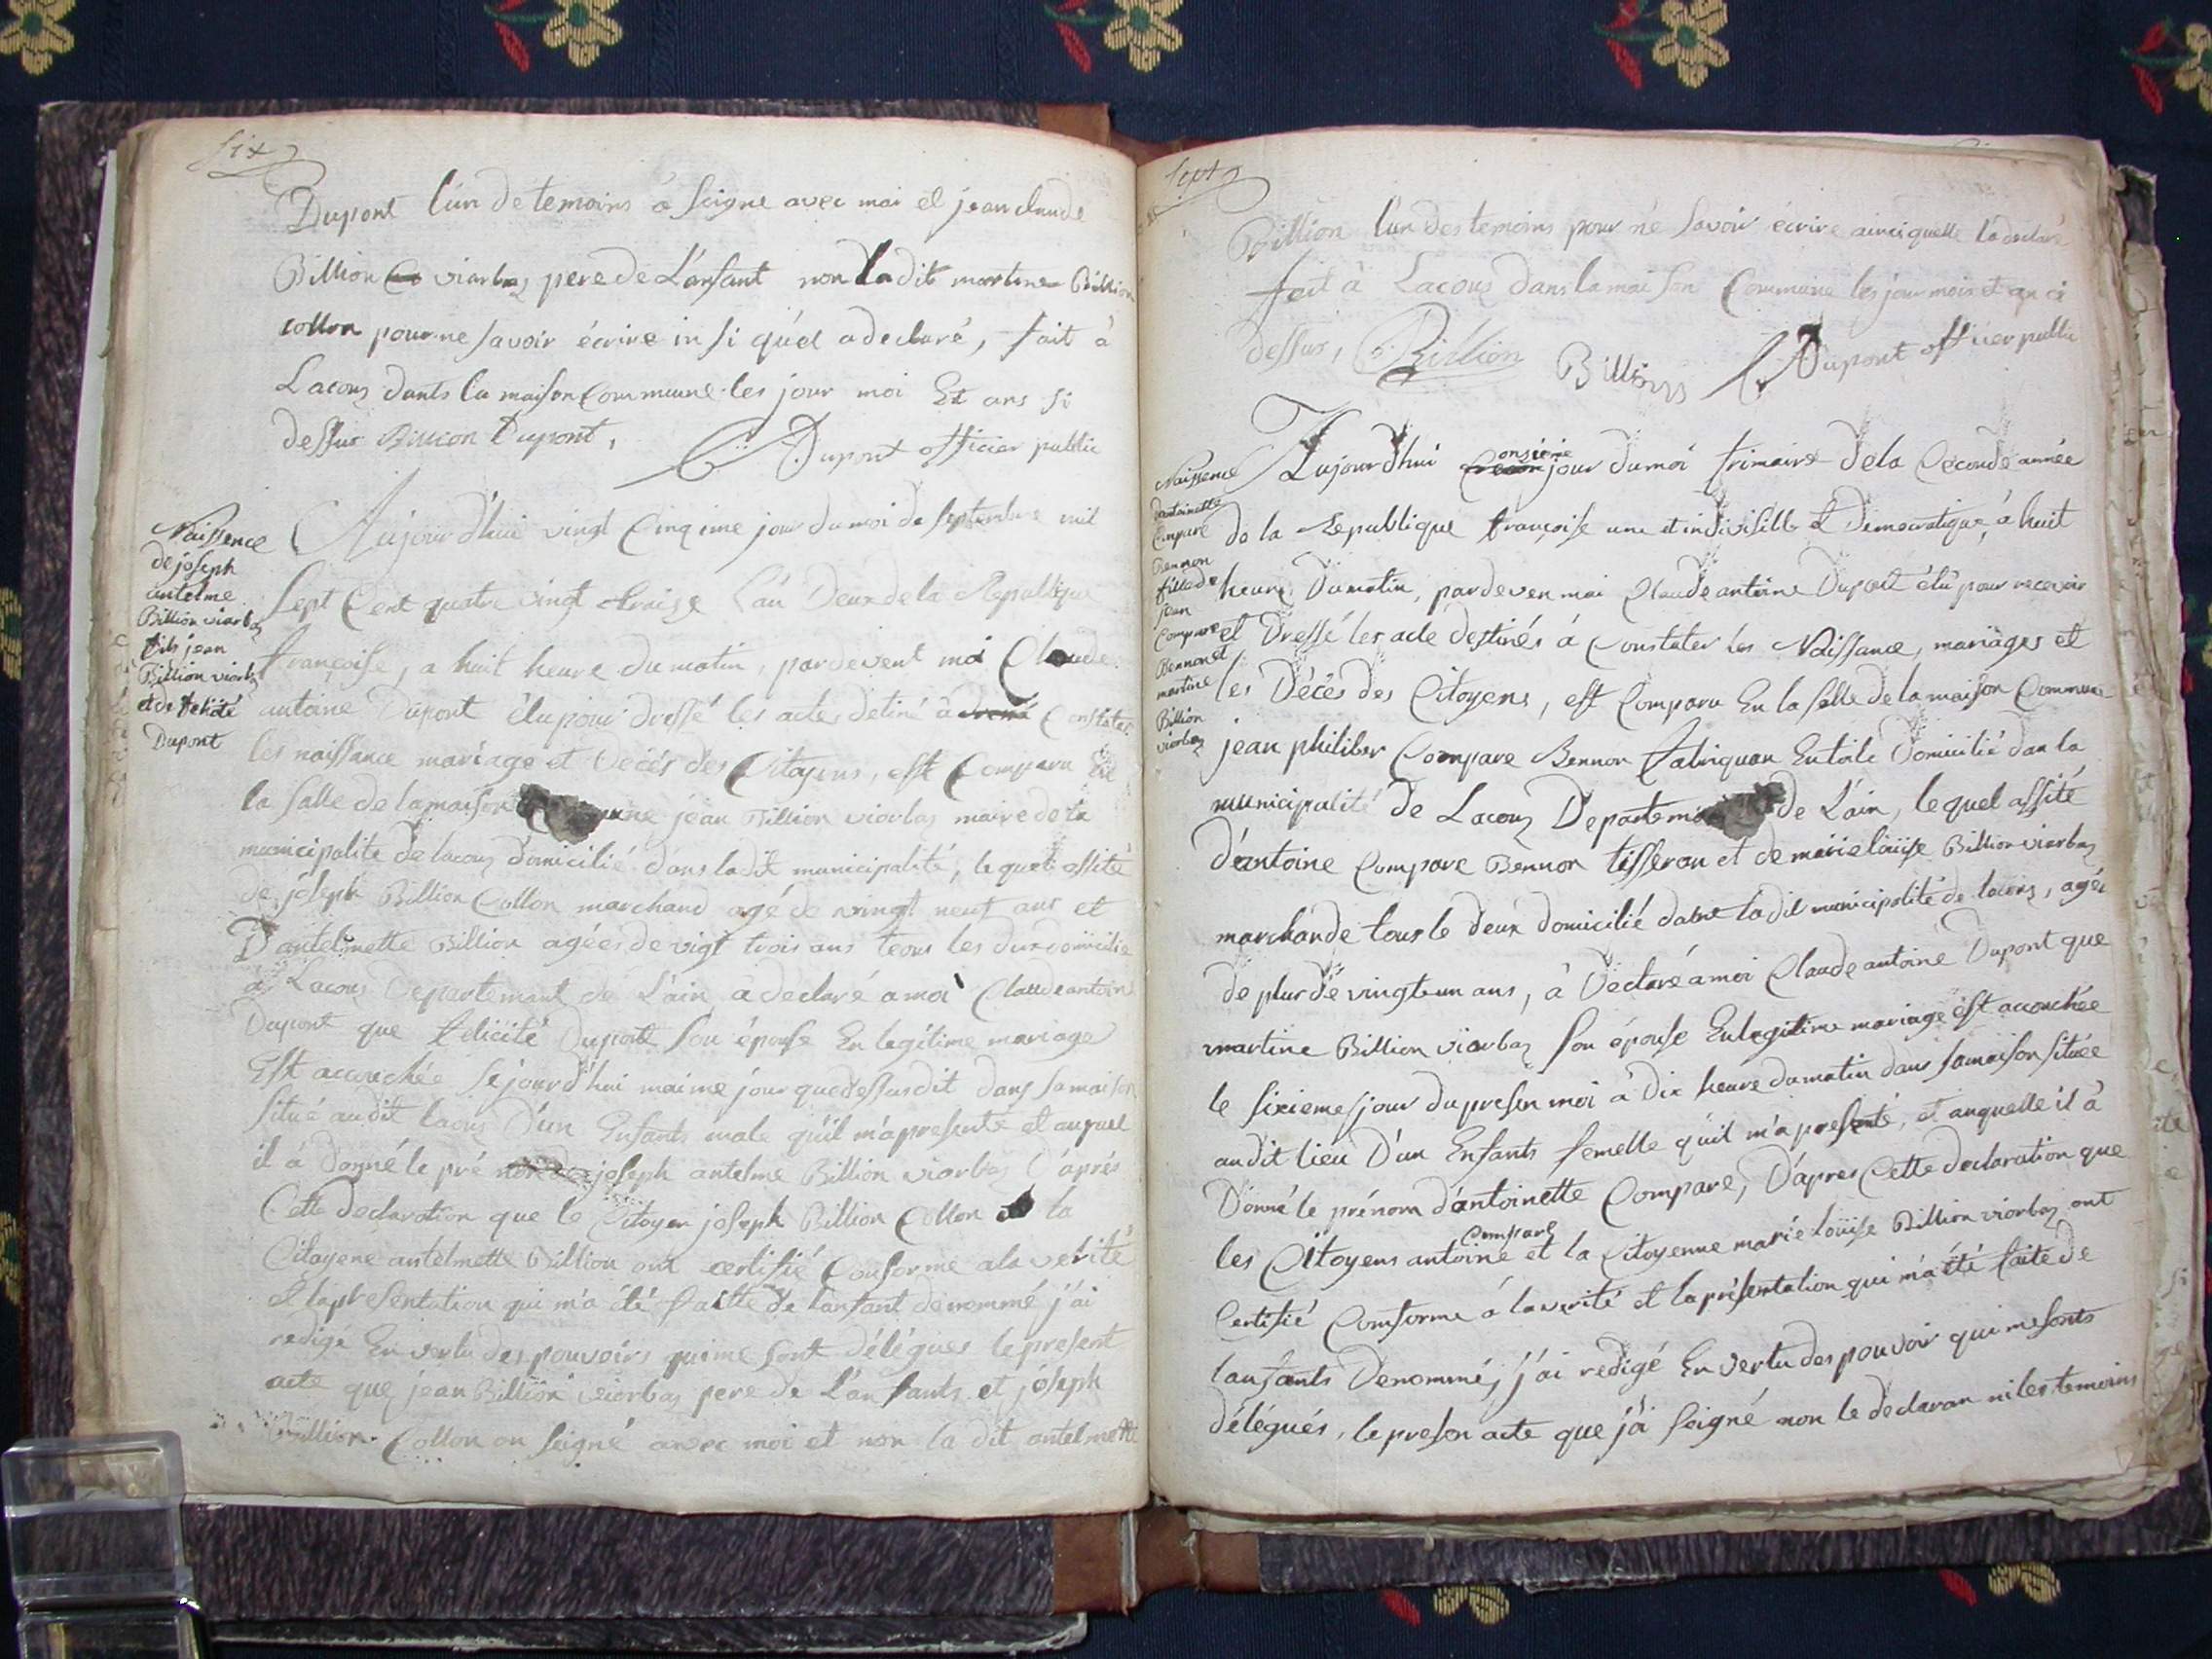 six
Dupont l'un de temoins à seigne avec moi et jean claude
Billion viarbas pere de L'ansant non ladit martine Billion
collon pour ne savoir écrire in si qu'el a declaré, fait à
Lacoux dants la maison Commune les jour moi Et ans si
dessus Billion Dupont,
Dupont officier public
Naissence
de joseph
antelme
Billion viarbas
fils jean
Billion viarbas
et de felicité
Dupont
Aujourd'hui vingt Cinqieme jour du moi de septembre mil
sept Cent quatre vingt traise L'an Deux de la Republique
françoise, a huit heure du matin, pardevent moi Claude
antoine Dupont élu pour dressé les actes detiné à Constater
les naissance mariage et Décés des Citoyens, est Comparu En
la salle de la maison jean Billion viarbas maire de la
municipalite de lacoux domicilié dans ladit municipalité, le quel assité
de joseph Billion Collon marchand agé de vingt neuf ans et
D'antelmette Billion agées de vigt trois ans tous les dux domicilie
à Lacoux Departemant de L'ain, a declaré a moi Claude antoine
Dupont que felicité Dupont son épouse En legitime mariage
Est accouchée sejourd'hui maime jour que dessus dit dans sa maison
situé audit lacoux D'un Enfants male qu'il m'a presenté et auquel
il à Donné le pré joseph antelme Billion viarbas D'aprés
Cette declaration que le Citoyen joseph Billion Collon la
Citoyene antelmette Billion ont certifié Conforme a la verité
et la presentation qui m'a été faitte de l'anfant denommé j'ai
redigé En vertu des pouvoirs qui me sont délégues le present
acte que jean Billion viarbas pere de L'an fants et joseph
Billion Collon on seigné avec moi et non la dit antelmette
sept
Billion l'un des temoins pour ne savoir écrire ainci quelle la declaré
fait à Lacoux dans la maison Commune les jour mois et an ci
dessus, Billion Billion Dupont officier public
Naissence
d'antoinette
Compare
Bennon
fille de
jean
Compare
Bennon et
martine
Billion
viarbas
onsieme
Aujourdhui jour du moi frimaire de la Ceconde année
de la Republique françoise une et indivisille et Democratique, à huit
heure Du matin, pardeven moi Claude antoine Dupont élu pour recevoir
et Dressé les acte destinés à Constater les Naissance, mariages et
les Décès des Citoyens, est Comparu En la salle de la maison Commune
jean philiber Compare Bennon fabriquan En toile Domicilié dan la
municipalité de Lacoux Departemant de L'ain, le quel assité
d'antoine Compare Bennon tisseran et de marie louise Billion viarbas
marchande tous le deux domicilié dans ladit municipalité de lacoux, agés
de plus de vingt un ans, à Declaré a moi Claude antoine Dupont que
martine Billion viarbas son épouse En legitime mariage est accouchée
le sixieme jour du presen moi à dix heure du matin dans sa maison située
au dit lieu D'un Enfants femelle qu'il m'a presenté, et auquelle il à
Donné le prénom d'antoinette Compare, D'apres Cette declaration que
Compare
les Citoyens antoine et la Citoyenne marie louise Billion viarbas ont
Certifié Comforme à la verité et la présentation qui m'a été faite de
lanfants Denommé, j'ai redigé En vertu des pouvoir qui me sonts
délégués, le presen acte que j'ai seigné non le declaran ni les temoins